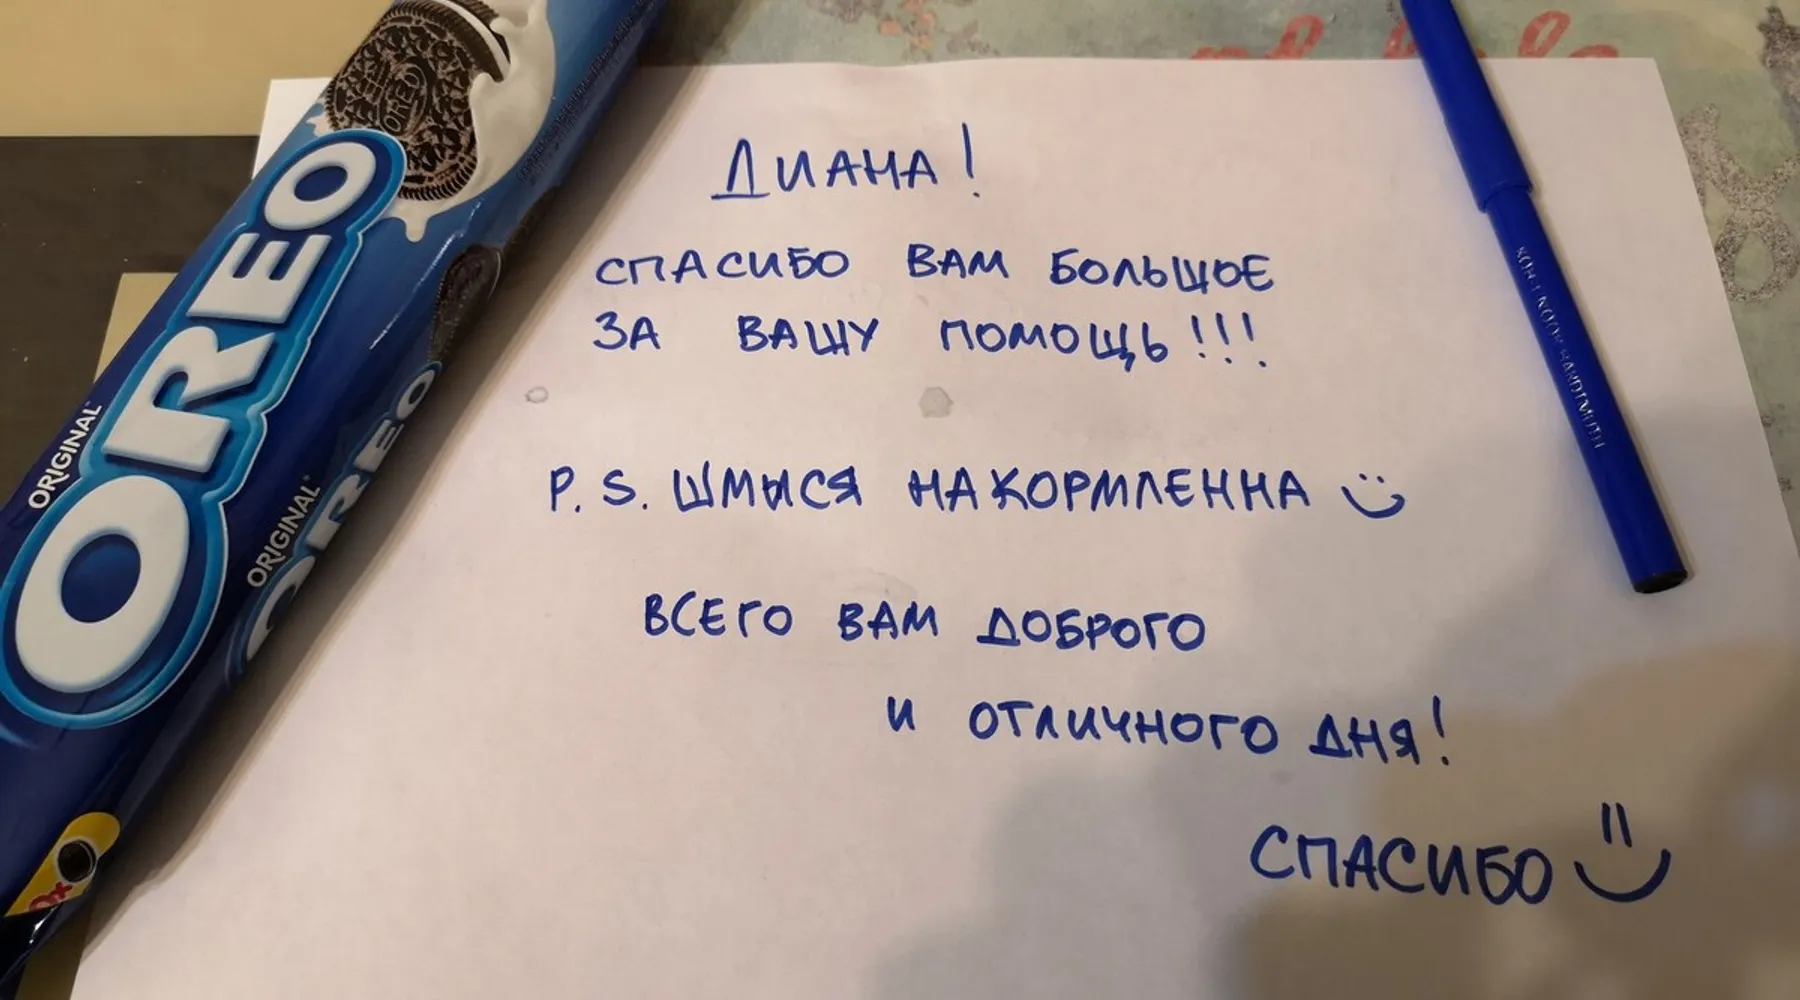 OREO
ORIGINAL
OREO
ORIGINAL
OREO
ДИАНА!
СПАСИБО ВАМ БОЛЬШОЕ
ЗА ВАШУ ПОМОЩЬ!!!
P.S. ШМЫСЯ НАКОРМЛЕННА
ВСЕГО ВАМ ДОБРОГО
И ОТЛИЧНОГО ДНЯ!
СПАСИБО
KOH-I-NOOR HARDTMUTH